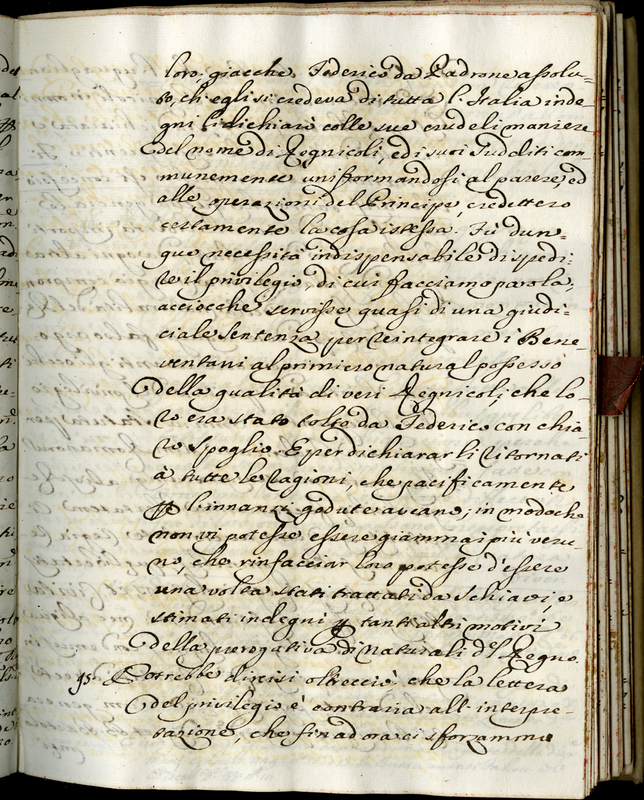 loro; giacche Federico da Padrone assolu-
to, ch'egli si credeva di tutta l'Italia inde-
gni li dichiarò colle sue crudeli maniere
del nome di Regnicoli, ed i suoi Sudditi com-
munemente uniformandosi al parere, ed
alle operazioni del Principe, credettero
certamente la cosa istessa. Fù dun-
que necessità indispensabile di spedi-
re il privilegio, di cui facciamo parola,
acciocche servisse quasi di una giudi-
ciale sentenza per reintegrare i Bene-
ventani al primiero natural possesso
della qualità di veri Regnicoli, che lo-
ro era stato tolto da Federico con chia-
ro spoglio. E per dichiararli ritornati
à tutte le ragioni, che pacificamente
p l'innanzi godute aveano; in modo che
non vi potesse essere giammai più veru-
no, che rinfacciar loro potesse d'essere
una volta stati trattati da Schiavi, e
stimati indegni p tanti altri motivi
della prerogativa di naturali dl Regno.
95. Potrebbe dirsi oltracciò che la lettera
del privilegio è contraria all'interpre-
tazione, che fin ad ora ci sforzammo